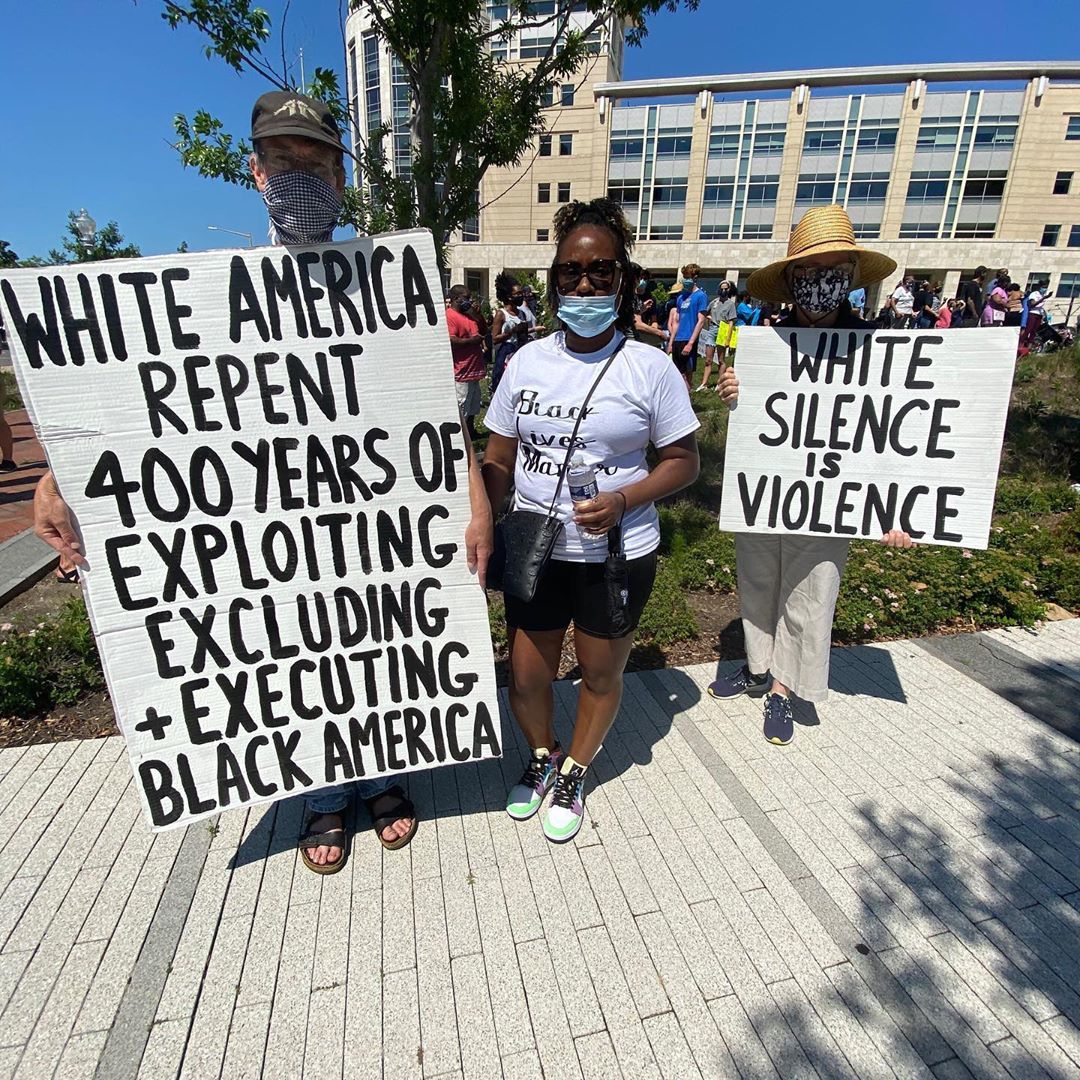 WHITE AMERICA
REPENT
400 YEARS OF
EXPLOITING
EXCLUDING
+ EXECUTING
BLACK AMERICA
Black
Lives
WHITE
SILENCE
IS
VIOLENCE